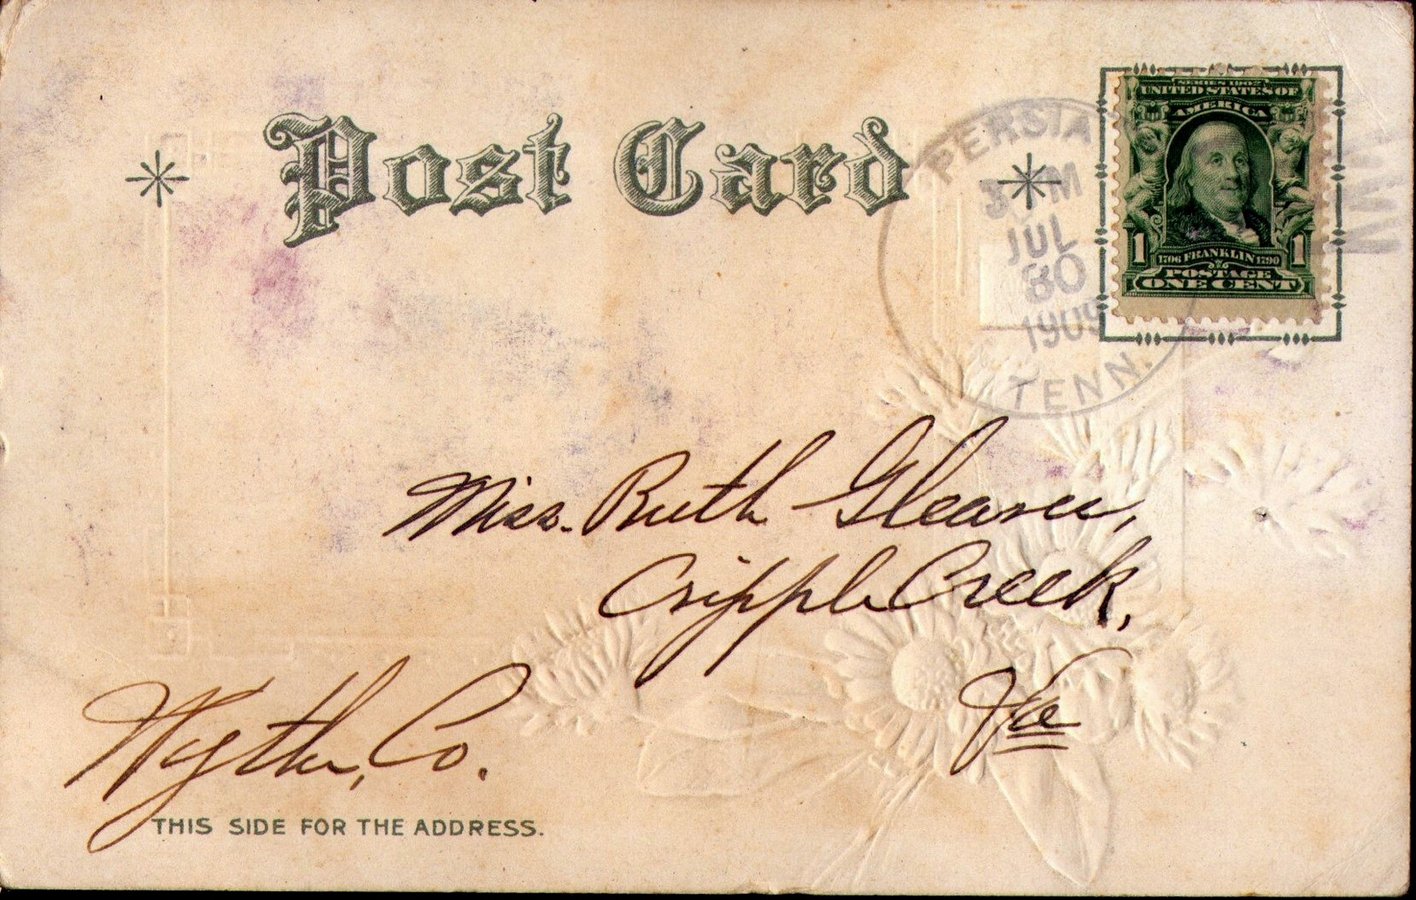 Post Card
PERSIA
M
JUL
30
1909
TENN.
SERIES 1902
UNITED STATES OF
AMERICA
1 1706 FRANKLIN 1790 1
POSTAGE
ONE CENT
Miss. Ruth Gleaves,
Cripple Creek,
Va
Wythe, Co.
THIS SIDE FOR THE ADDRESS.